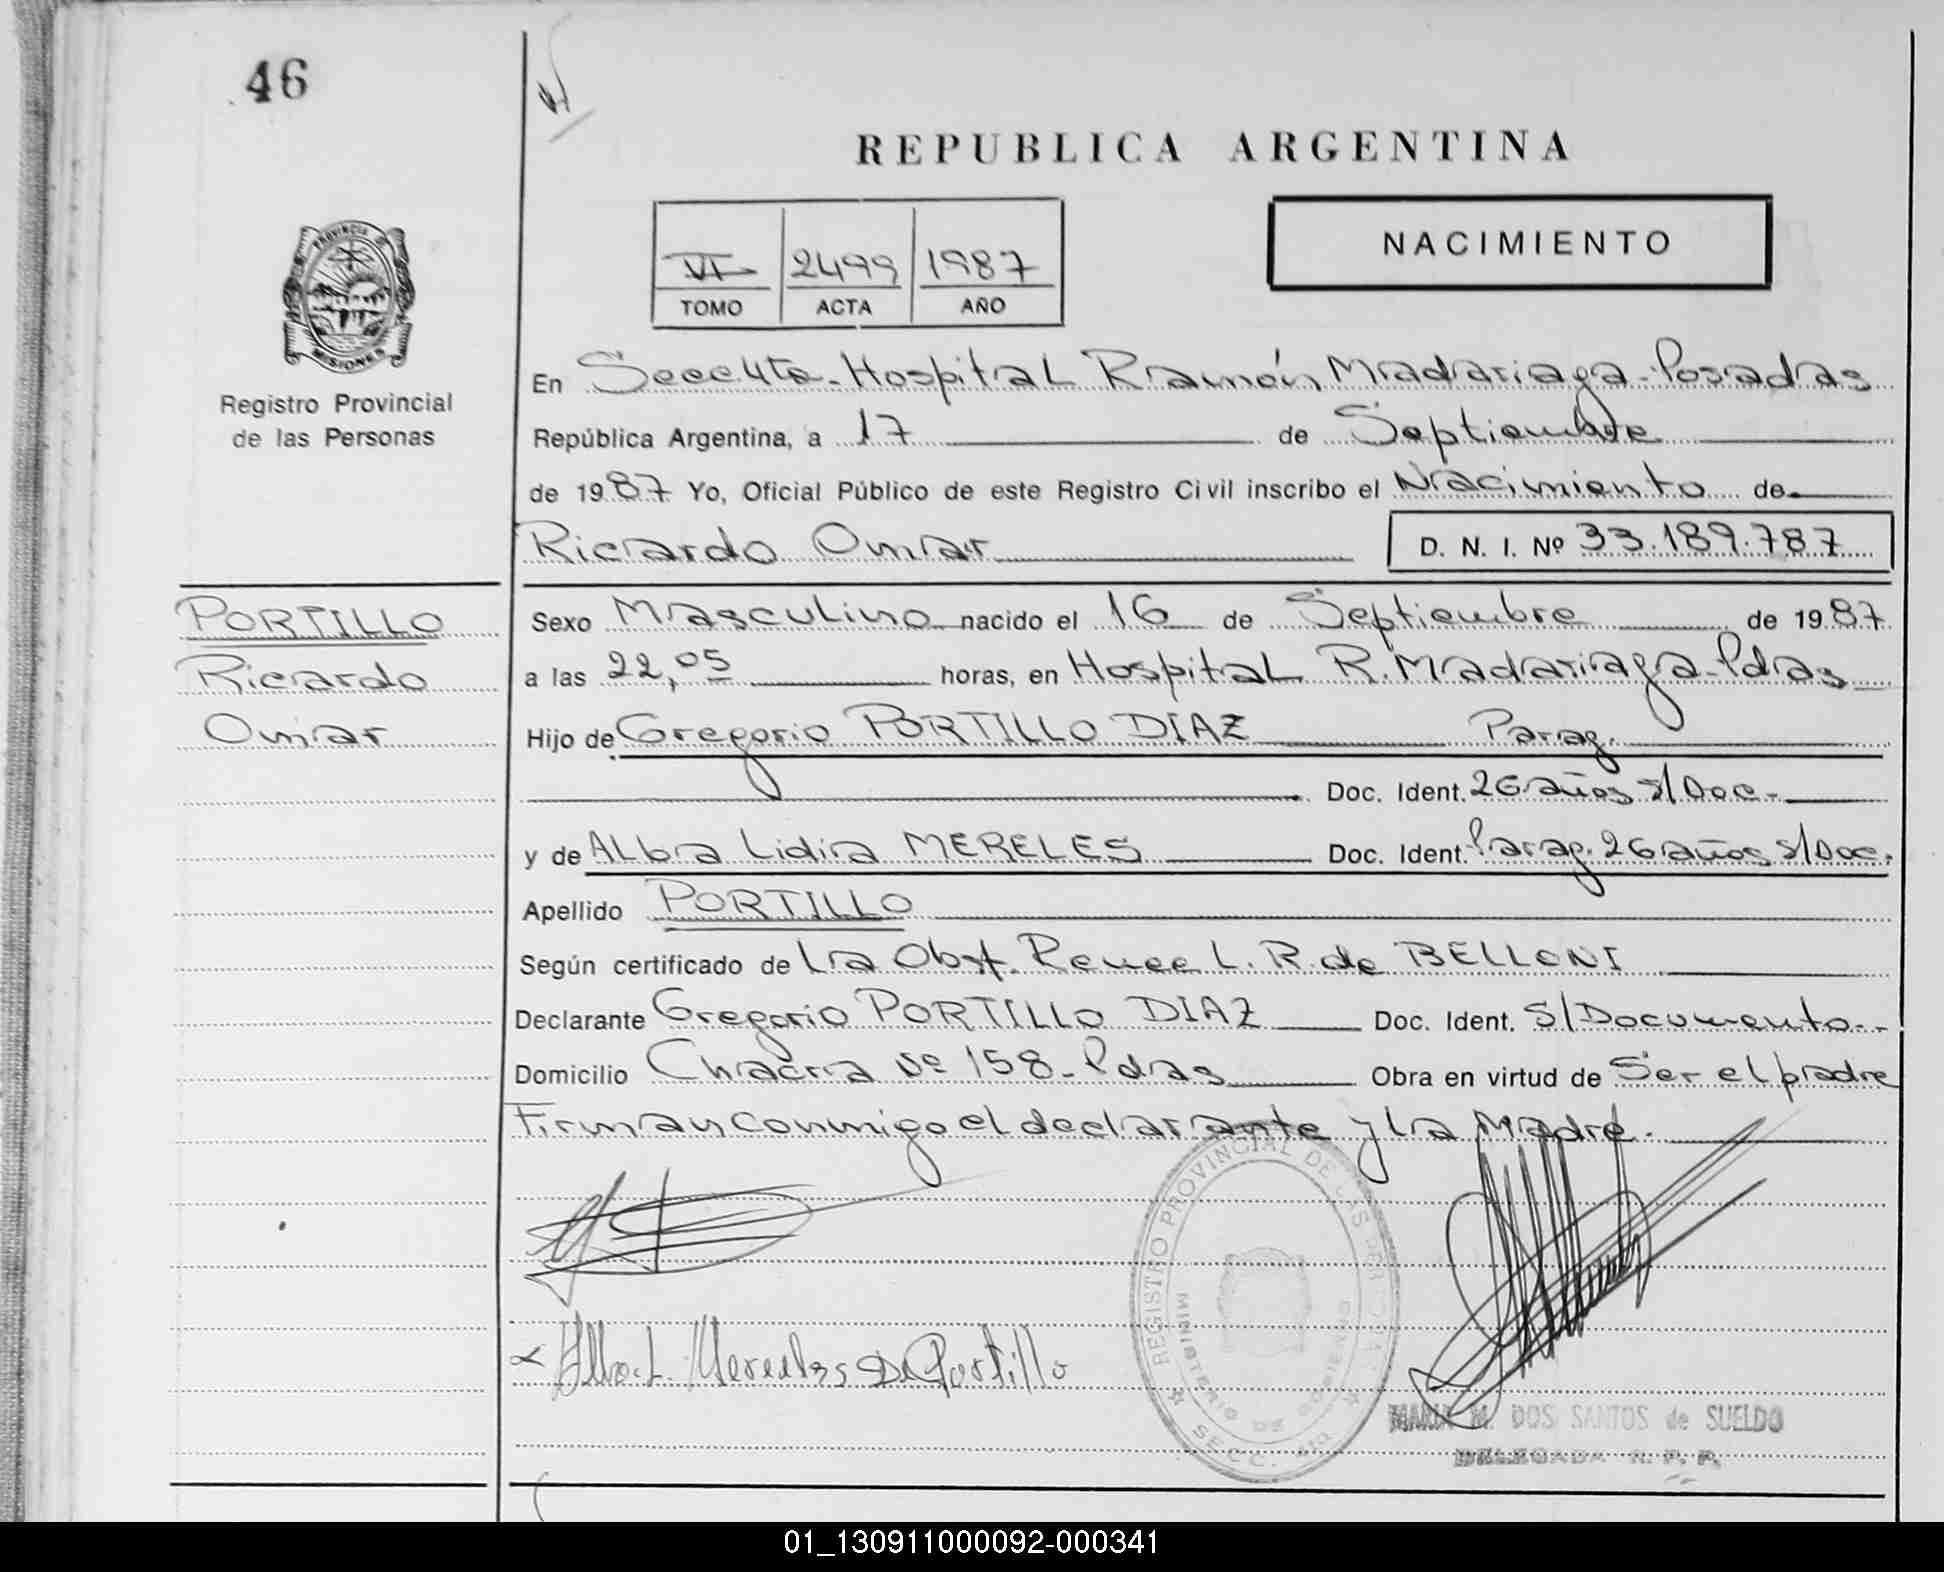 46
REPUBLICA ARGENTINA
VI 2499 1987
TOMO ACTA AÑO
NACIMIENTO
PROVINCIA DE
MISIONES
Registro Provincial
de las Personas
En Secc. 4ta - Hospital Ramón Madariaga - Posadas
República Argentina, a 17 de Septiembre
de 1987 Yo, Oficial Público de este Registro Civil inscribo el Nacimiento de
Ricardo Omar D. N. I. Nº 33.189.787
PORTILLO
Ricardo
Omar
Sexo Masculino nacido el 16 de Septiembre de 1987
a las 22,05 horas, en Hospital R. Madariaga - Pdas
Hijo de Gregorio PORTILLO DIAZ Parag.
Doc. Ident. 26 años s/Doc.
y de Alba Lidia MERELES Doc. Ident. Parag. 26 años s/Doc.
Apellido PORTILLO
Según certificado de La Obst. Renee L. R. de BELLONI
Declarante Gregorio PORTILLO DIAZ Doc. Ident. S/Documento
Domicilio Chacra Nº 158 - Pdas Obra en virtud de Ser el padre
Firman conmigo el declarante y la Madre.
REGISTRO PROVINCIAL DE LAS PERSONAS
MINISTERIO DE GOBIERNO
SECC. 4ta
Alba L. Mereles De Portillo
MARIA M. DOS SANTOS de SUELDO
DELEGADA R. P. P.
01_130911000092-000341